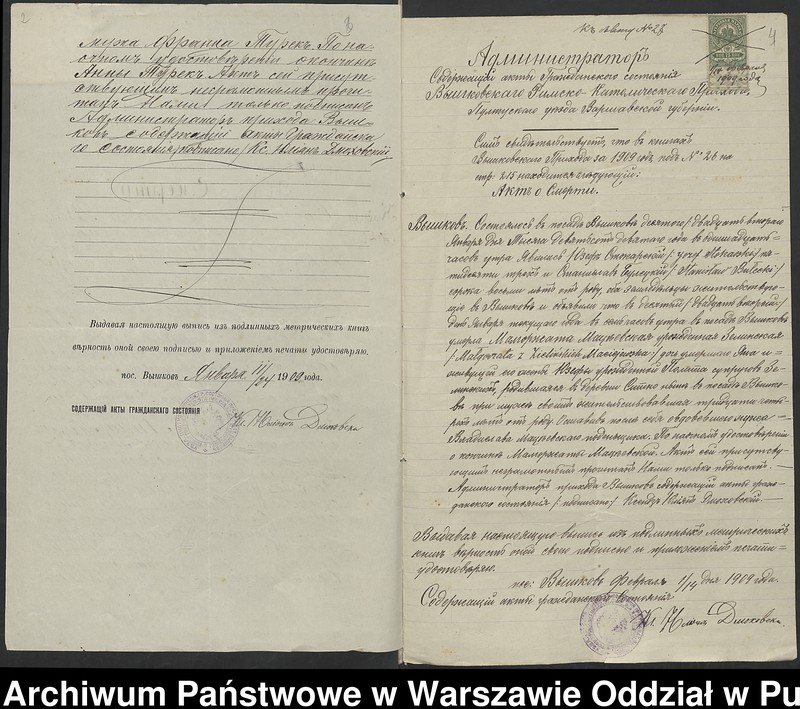 2
мужа Франца Турекъ. По на-
очномъ удостовѣреніи о кончинѣ
Анны Турекъ. Актъ сей присут-
ствующимъ неграмотнымъ прочи-
танъ Нами только подписанъ.
Администраторъ прихода Выш-
ковъ содержащій акты гражданска-
го состоянія /подписано/ Кс.
Выдавая настоящую выпись изъ подлинныхъ метрическихъ книгъ
вѣрность оной своею подписью и приложеніемъ печати удостовѣряю.
пос. Вышковъ Января 11/24 1909 года.
СОДЕРЖАЩІЙ АКТЫ ГРАЖДАНСКАГО СОСТОЯНІЯ
Къ листу № 27
4
Администраторъ
Содержащій акты Гражданскаго состоянія
Вышковскаго Римско-Католическаго Прихода,
Пултускаго уѣзда Варшавской губерніи.
Симъ свидѣтельствуетъ, что въ книгахъ
Вышковскаго Прихода за 1909 годъ подъ № 26 на
стр. 215 находится слѣдующій:
Актъ о Смерти.
Вышковъ. Состоялось въ посадѣ Вышковѣ девятаго /двадцать втораго/
Января дня Тысяча девятьсотъ девятаго года въ одиннадцать
часовъ утра. Явились Іосифъ
пятидесяти трехъ и Станиславъ
сорока восьми лѣтъ отъ роду, оба жительствую-
щіе въ Вышковѣ и объявили что въ девятый /двадцать второй/
день Января текущаго года въ семь часовъ утра въ посадѣ Вышковъ
умерла Малгоржата Мацѣевская урожденная Зелинская
/Małgorzata z Zielińskich Maciejewska/ дочь умершаго Яна и
живущей его жены урожденной супруговъ Зе-
линскихъ, родившаяся въ деревнѣ въ посадѣ Выш-
ковѣ при мужѣ своемъ жительствовавшая тридцати
лѣтъ отъ роду. Оставивъ послѣ себя овдовѣвшаго мужа
Владислава Мацѣевскаго поденщика. По наочномъ удостовѣреніи
о кончинѣ Малгоржаты Мацѣевской. Актъ сей присутству-
ющимъ неграмотнымъ прочитанъ Нами только подписанъ.
Администраторъ прихода Вышковъ содержащій акты граж-
данскаго состоянія /подписано/ Ксендзъ
Выдавая настоящую выпись изъ подлинныхъ метрическихъ
книгъ вѣрность оной своею подписью и приложеніемъ печати
удостовѣряю.
пос: Вышковъ Февраля 1/14 дня 1909 года.
Содержащій акты гражданскаго состоянія
Archiwum Państwowe w Warszawie Oddział w Pu